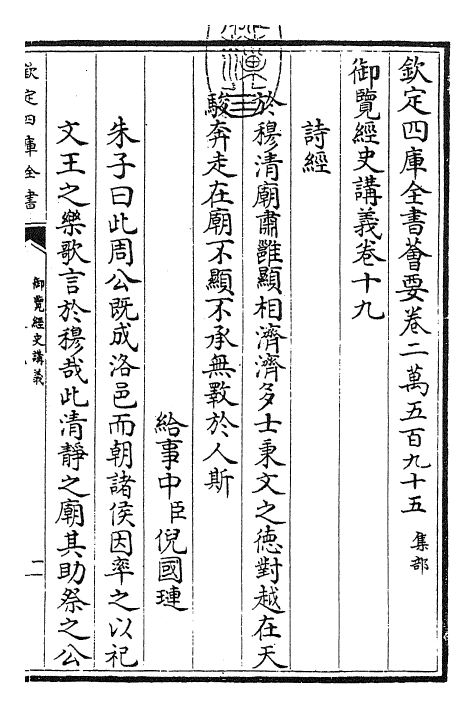 欽定四庫全書薈要卷二萬五百九十五 集部
御覽經史講義卷十九
詩經
於穆清廟肅雝顯相濟濟多士秉文之德對越在天
駿奔走在廟不顯不承無斁於人斯
給事中臣倪國璉
朱子曰此周公既成洛邑而朝諸侯因率之以祀
文王之樂歌言於穆哉此清靜之廟其助祭之公
欽定四庫全書
御覽經史講義